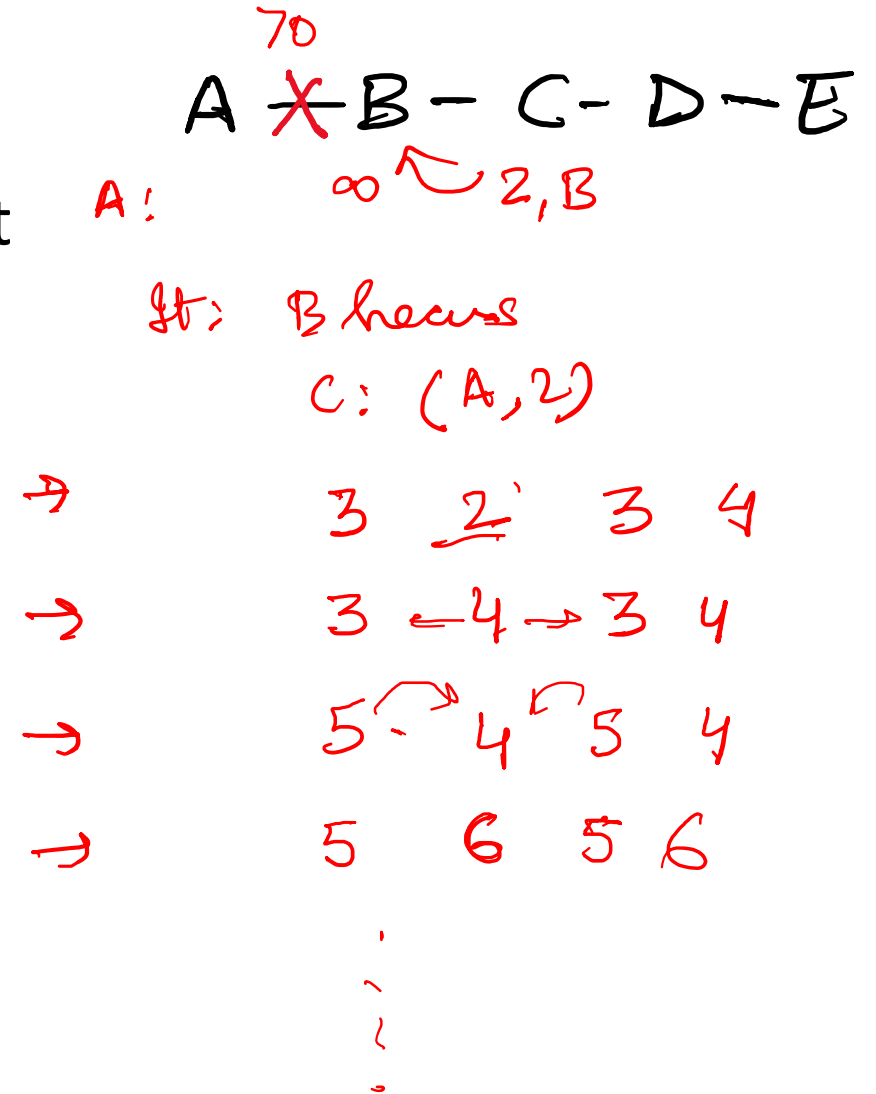 70
A B - C - D - E
t
A: ∞ 2, B
It: B hears
C: (A, 2)
→ 3 2 3 4
→ 3 ← 4 → 3 4
→ 5 4 5 4
→ 5 6 5 6